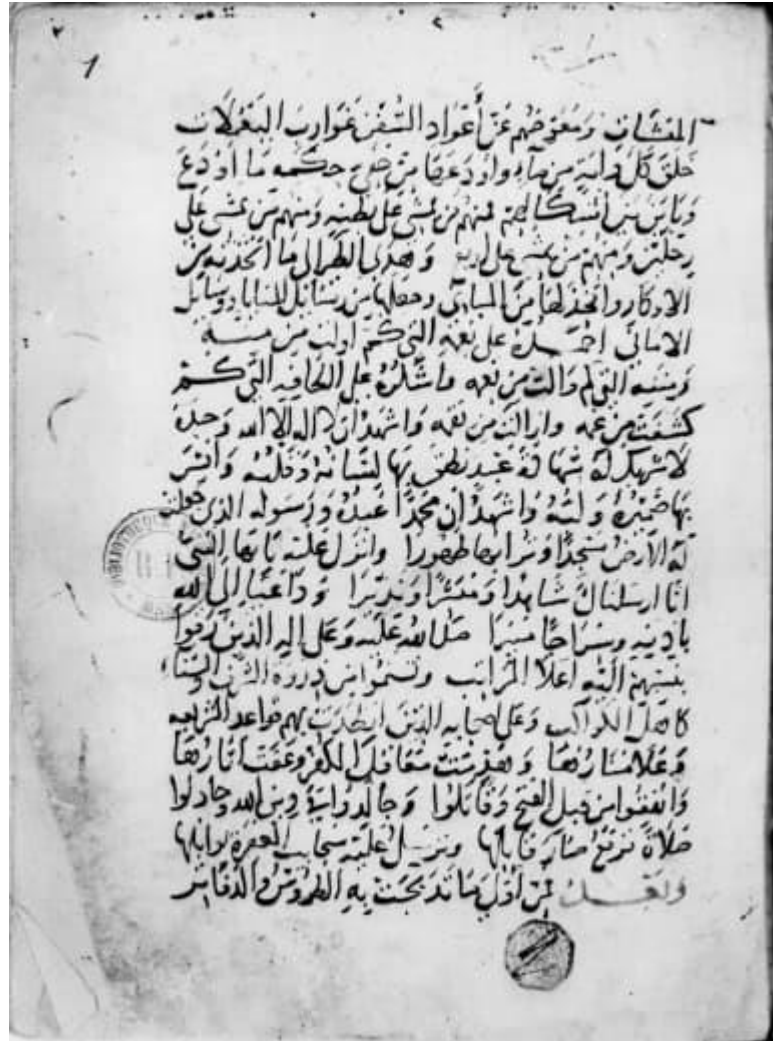 المنشآت ومعوضهم عن أعواد السفن غوارب اليعملات
خلق كل دابة من ماء واودعها من خفي حكمه ما اودع
وباين بين اشكالهم فمنهم من يمشي على بطنه ومنهم من يمشي على
رجلين ومنهم من يمشي على اربع وهدى الطير الى ما اتخذته من
الاوكار واتخذ لها من المباني وجعلها من رسائل المنايا ووسايل
الاماني احمده على نعمه التي كم اولت من منه
ومننه التي كم والت من نعمه واشكره على الطافه التي كم
كشفت من غمه وازالت من نقمه واشهد ان لا اله الا الله وحده
لا شريك له شهادة عبد نطق بها لسانه وقلبه وانس
بها ضميره ولبه واشهد ان محمدا عبده ورسوله الذي جعلت
له الارض مسجدا وترابها طهورا وانزل عليه يايها النبي
انا ارسلناك شاهدا ومبشرا ونذيرا وداعيا الى الله
باذنه وسراجا منيرا صلى الله عليه وعلى اله الذين رقوا
بنسبهم اليه اعلا المراتب وتسنموا من ذروة الشرف والسنا
كاهل الكواكب وعلى اصحابه الذين بهم قواعد الشريعه
وعلا منارها وهدمت معاقل الكفر وعفت اثارها
وانفقوا من قبل الفتح وقاتلوا وجالدوا في دين الله وجادلوا
صلاة ترتع وترسل عليه سحايب المغفرة وابلها
وبعد فمن اولى ما تدبجت به الطروس والدفاتر